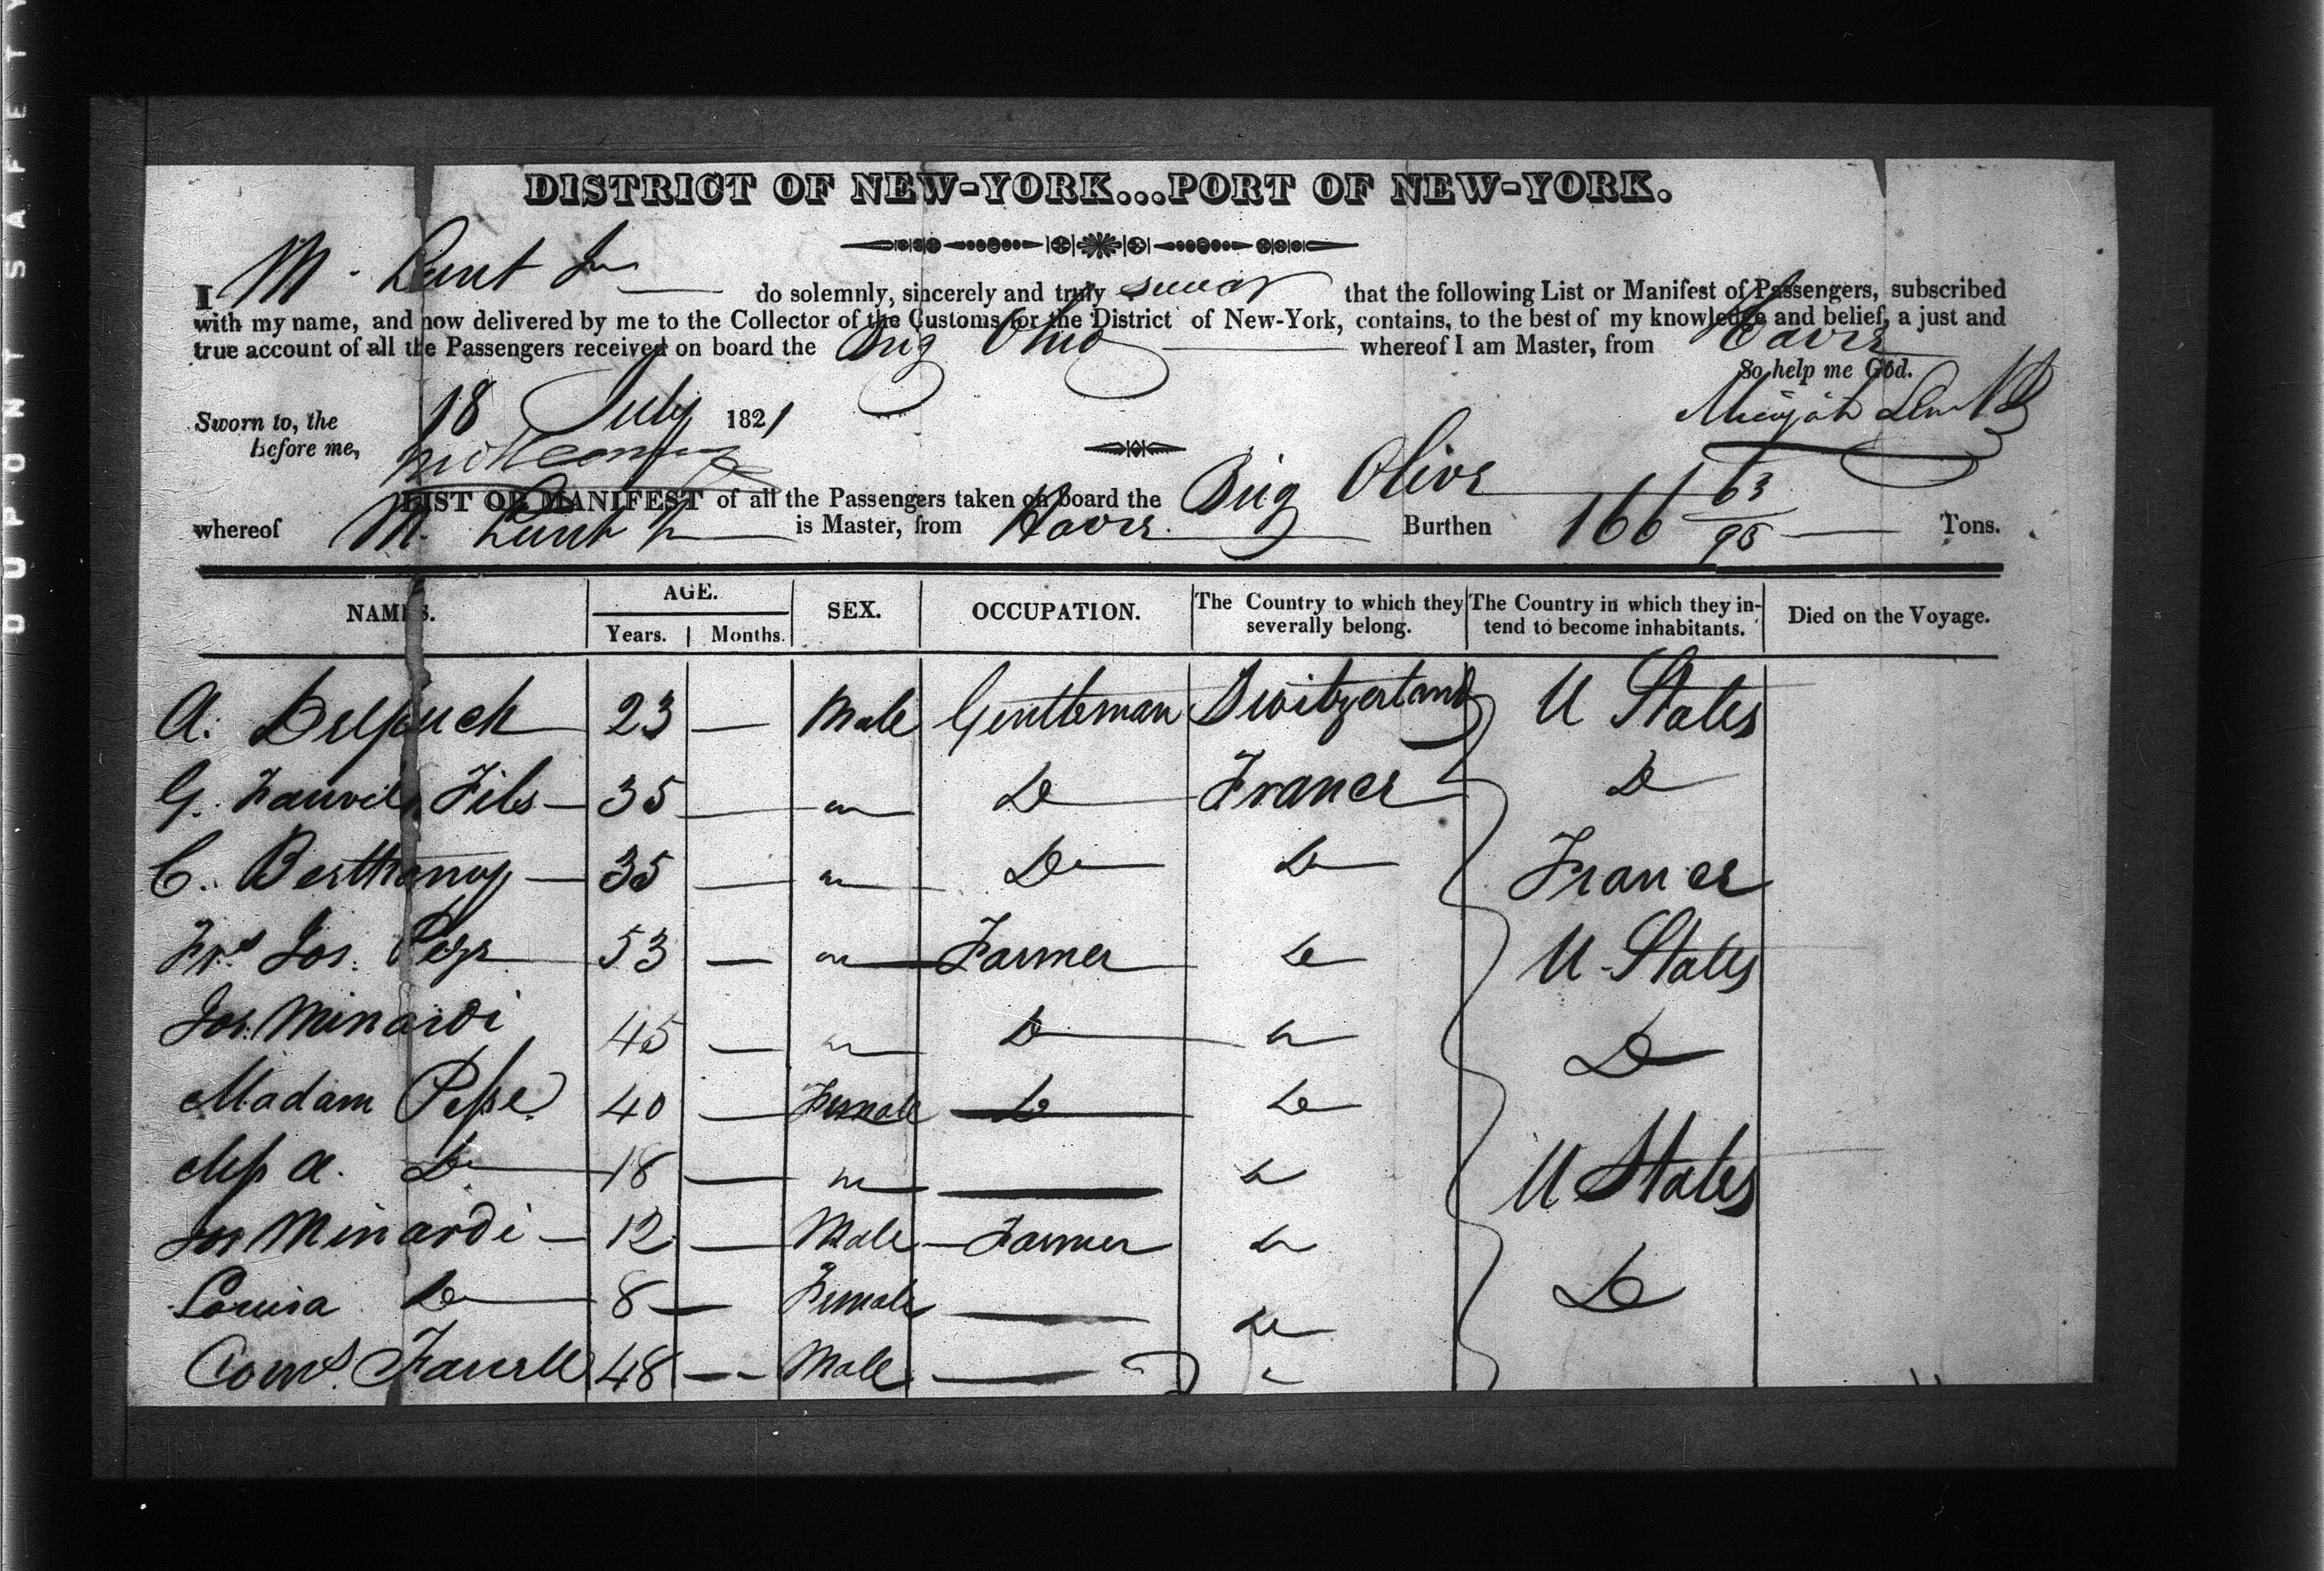 DUPONT SAFETY
DISTRICT OF NEW-YORK...PORT OF NEW-YORK.
I M. Lunt Jr do solemnly, sincerely and truly swear that the following List or Manifest of Passengers, subscribed
with my name, and now delivered by me to the Collector of the Customs for the District of New-York, contains, to the best of my knowledge and belief, a just and
true account of all the Passengers received on board the Brig whereof I am Master, from Havre
So help me God.
Sworn to, the 18 July 1821 Micajah Lunt Jr
before me,
LIST OR MANIFEST of all the Passengers taken on board the Brig Olive
whereof M. Lunt Jr is Master, from Havre. Burthen 166 63/95 Tons.
NAMES. AGE. SEX. OCCUPATION. The Country to which they severally belong. The Country in which they intend to become inhabitants. Died on the Voyage.
Years. Months.
A. Delpuech 23 — Male Gentleman Switzerland U States
G. Fauvel Fils 35 — " Do France Do
C. Berthany 35 — " Do Do France
Frs Jos. 53 — " Farmer Do U States
Jos. Minardi 45 — " Do Do Do
Madam 40 — Female Do Do
A. Do 18 — " — Do U States
Jos Minardi 12 — Male Farmer Do
Louisa Do 8 — Female — Do Do
48 — Male —